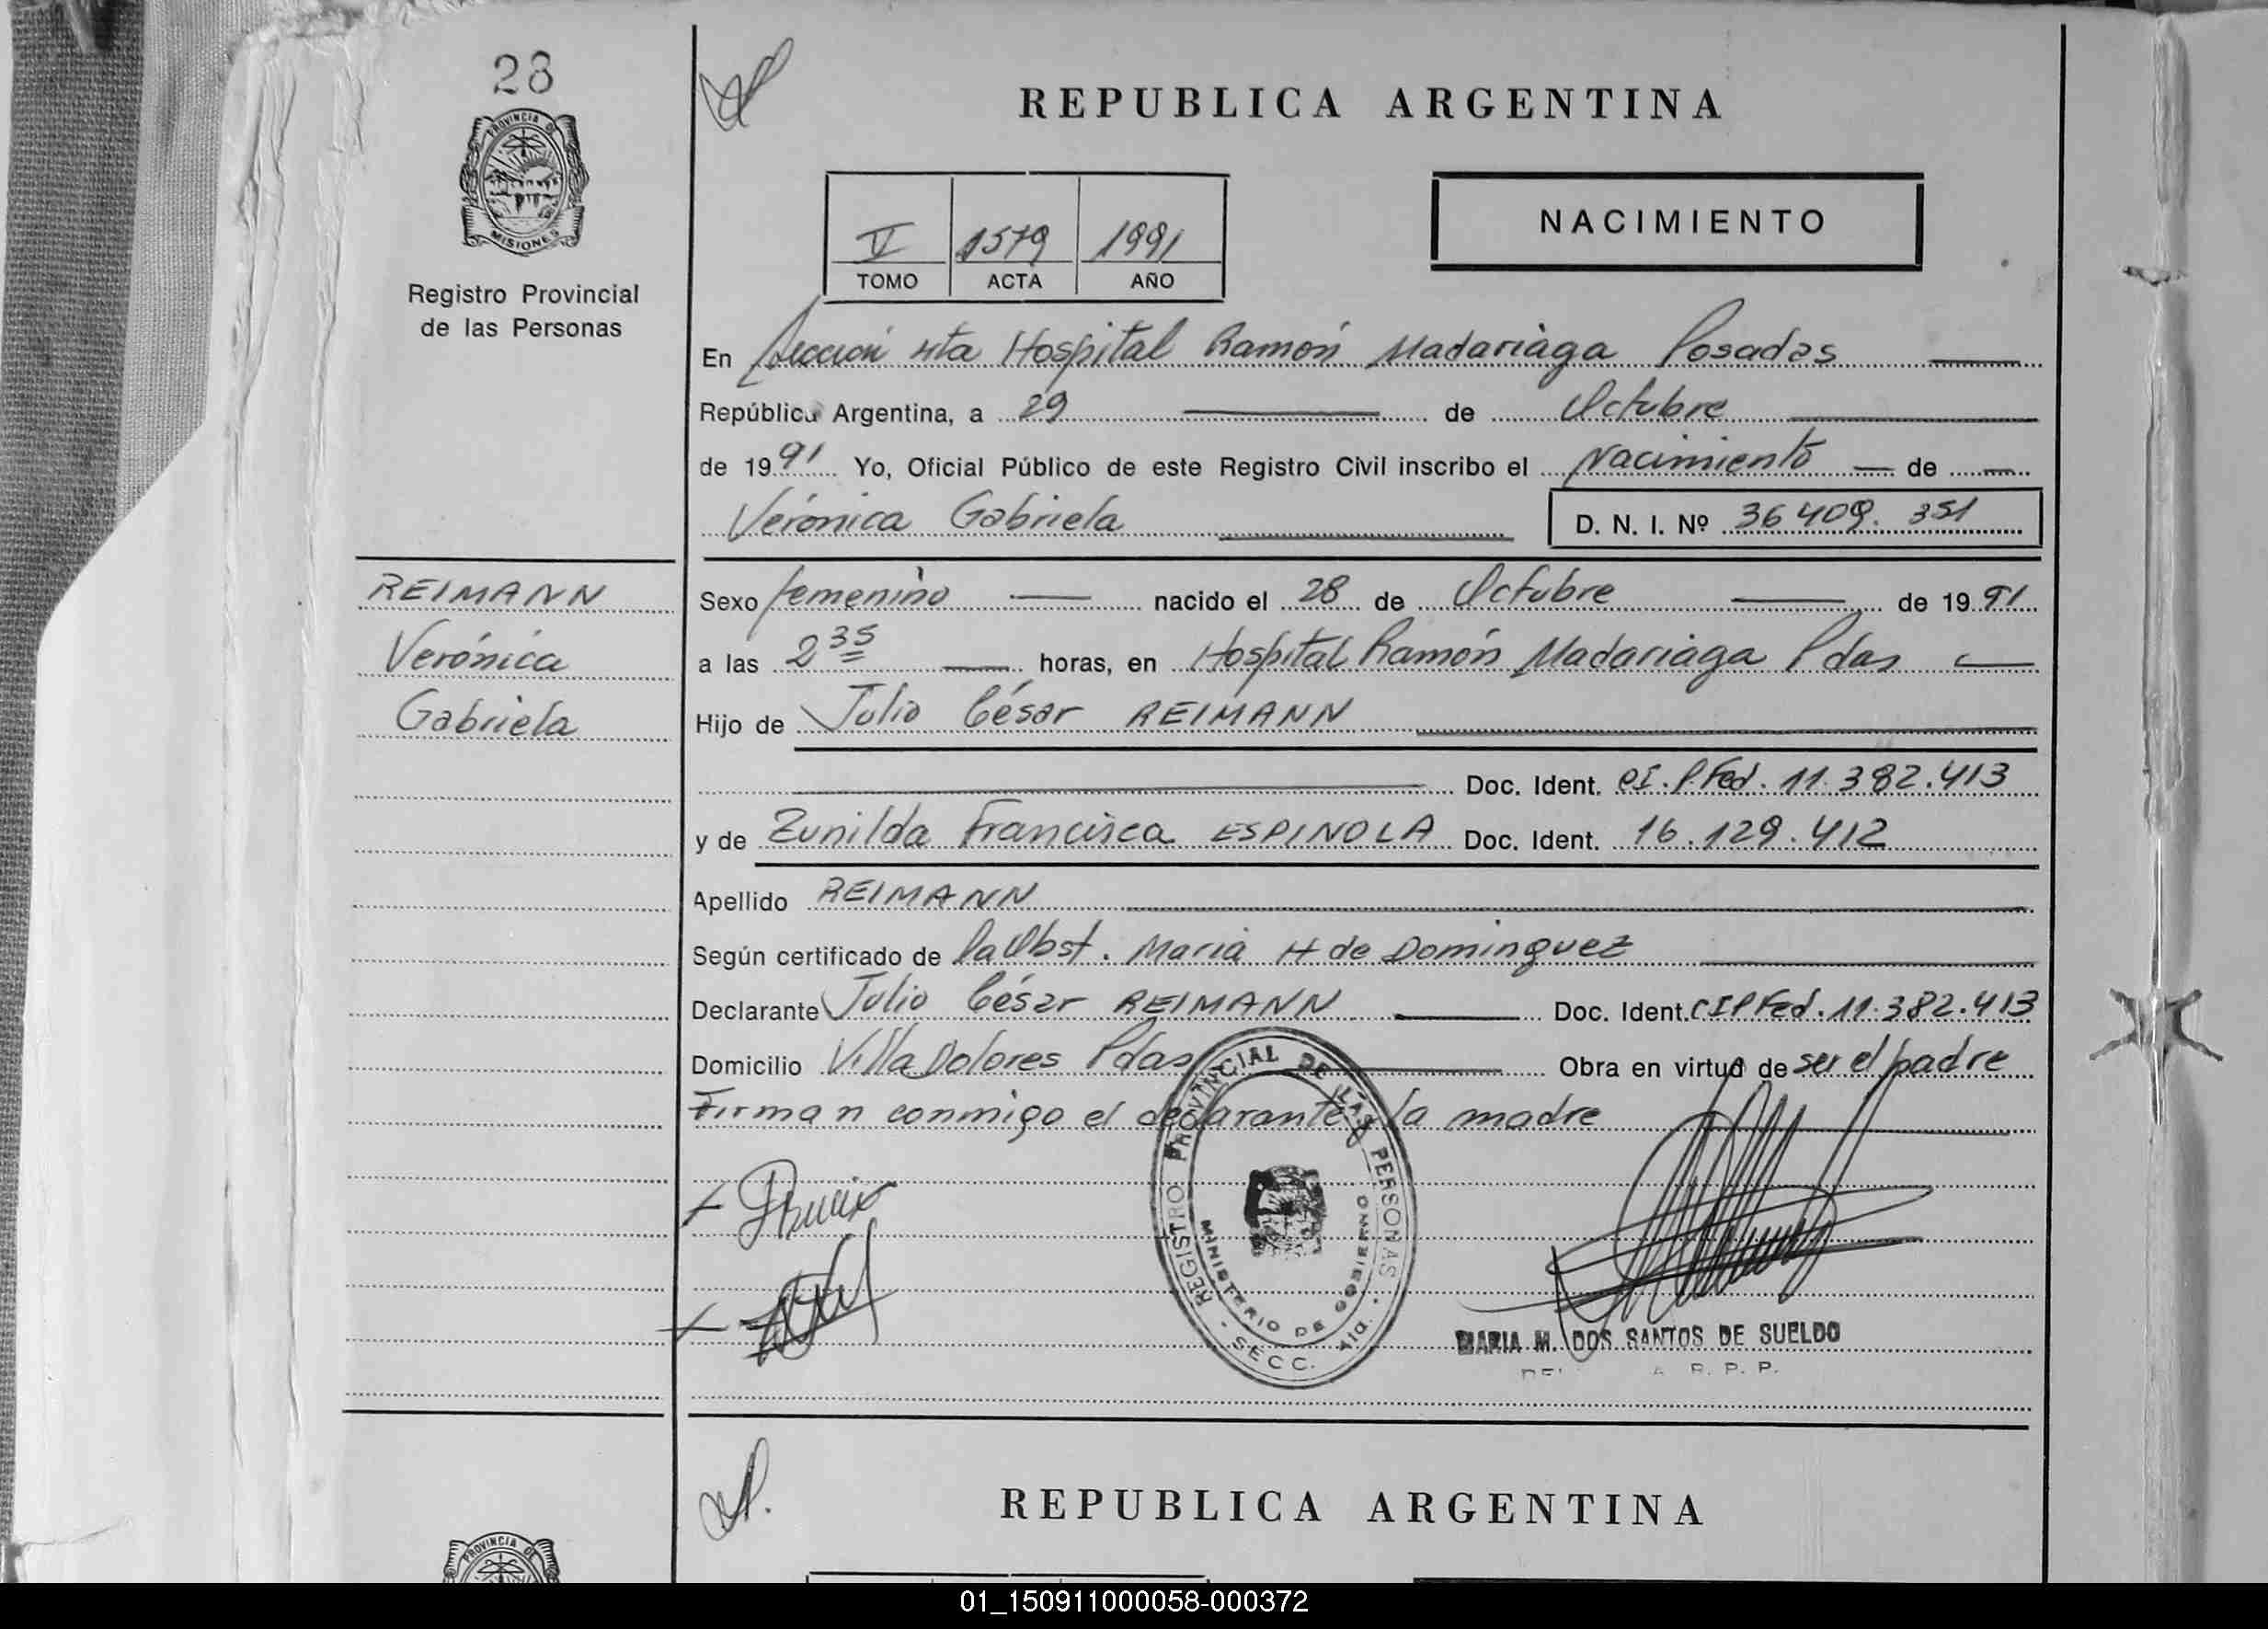 28
PROVINCIA DE
MISIONES
Registro Provincial
de las Personas
REPUBLICA ARGENTINA
V 1579 1991
TOMO ACTA AÑO
NACIMIENTO
En Sección 4ta Hospital Ramón Madariaga Posadas
República Argentina, a 29 de Octubre
de 1991 Yo, Oficial Público de este Registro Civil inscribo el Nacimiento de
Verónica Gabriela D. N. I. Nº 36 409. 351
REIMANN
Verónica
Gabriela
Sexo femenino nacido el 28 de Octubre de 1991
a las 2 35 horas, en Hospital Ramón Madariaga Pdas
Hijo de Julio César REIMANN
Doc. Ident. CI. P. Fed. 11.382.413
y de Zunilda Francisca ESPINOLA Doc. Ident. 16.129.412
Apellido REIMANN
Según certificado de la Obst. Maria H de Dominguez
Declarante Julio César REIMANN Doc. Ident. CI P Fed. 11.382.413
Domicilio Villa Dolores Pdas Obra en virtud de ser el padre
Firman conmigo el declarante y la madre
REGISTRO PROVINCIAL DE LAS PERSONAS
MINISTERIO DE GOBIERNO
SECC. 4ta.
MARIA M. DOS SANTOS DE SUELDO
R. P. P.
REPUBLICA ARGENTINA
PROVINCIA DE
01_150911000058-000372